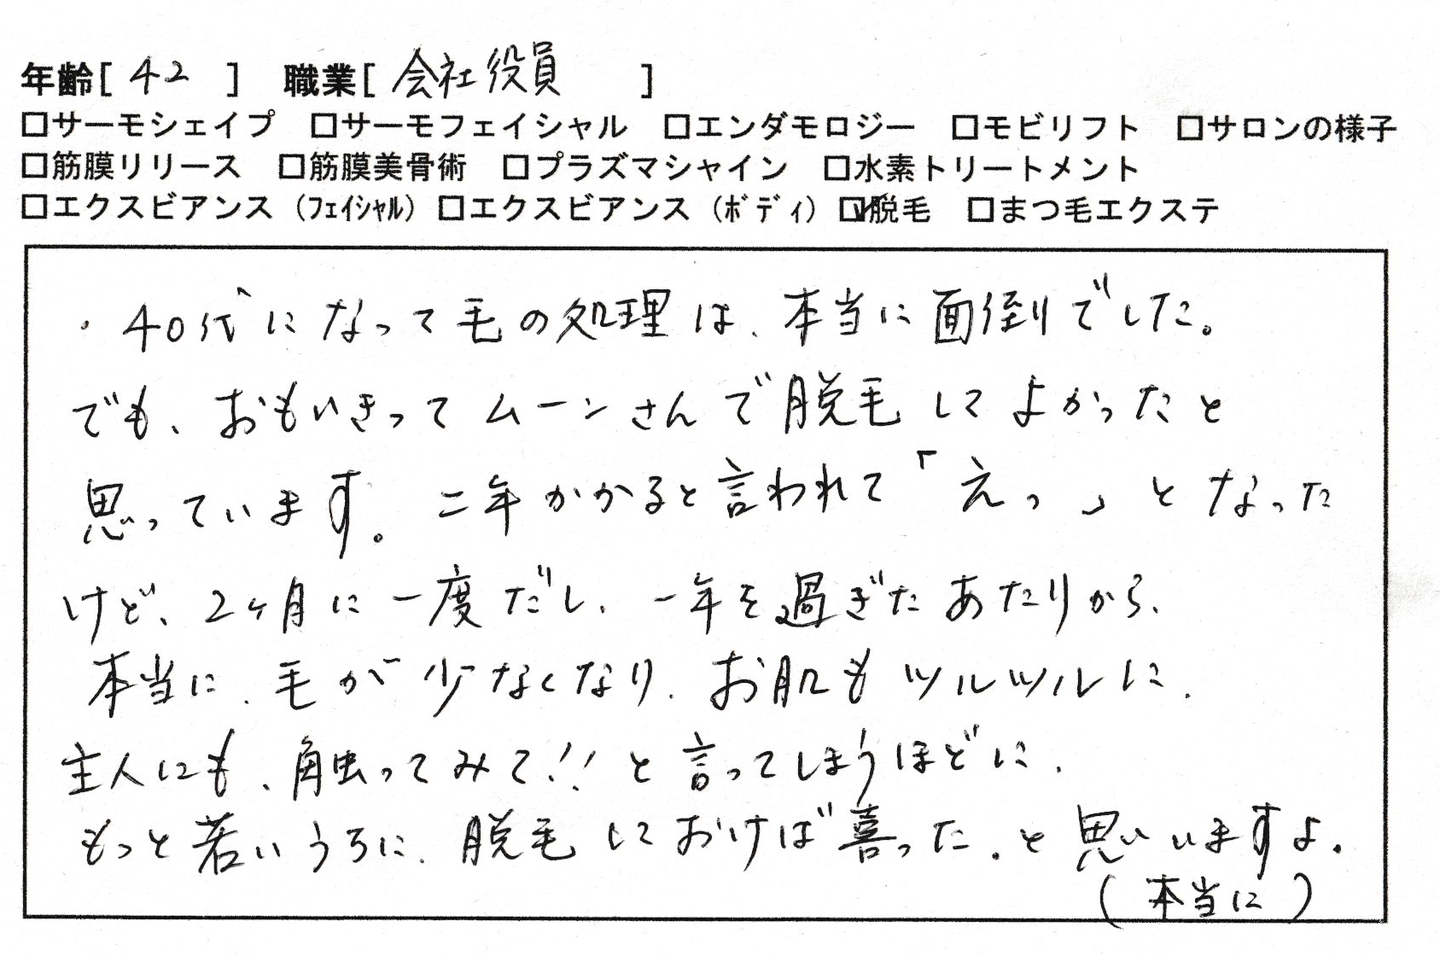 年齢[ 42 ] 職業[ 会社役員 ]
□サーモシェイプ □サーモフェイシャル □エンダモロジー □モビリフト □サロンの様子
□筋膜リリース □筋膜美骨術 □プラズマシャイン □水素トリートメント
□エクスビアンス（ﾌｪｲｼｬﾙ）□エクスビアンス（ﾎﾞﾃﾞｨ）☑脱毛 □まつ毛エクステ
・40代になって毛の処理は、本当に面倒でした。
でも、おもいきってムーンさんで脱毛してよかったと
思っています。二年かかると言われて「えっ」となった
けど、2ヶ月に一度だし、一年を過ぎたあたりから、
本当に、毛が少なくなり、お肌もツルツルに、
主人にも、触ってみて!!と言ってしまうほどに、
もっと若いうちに、脱毛しておけば喜った。と思いいますよ。
（本当に）